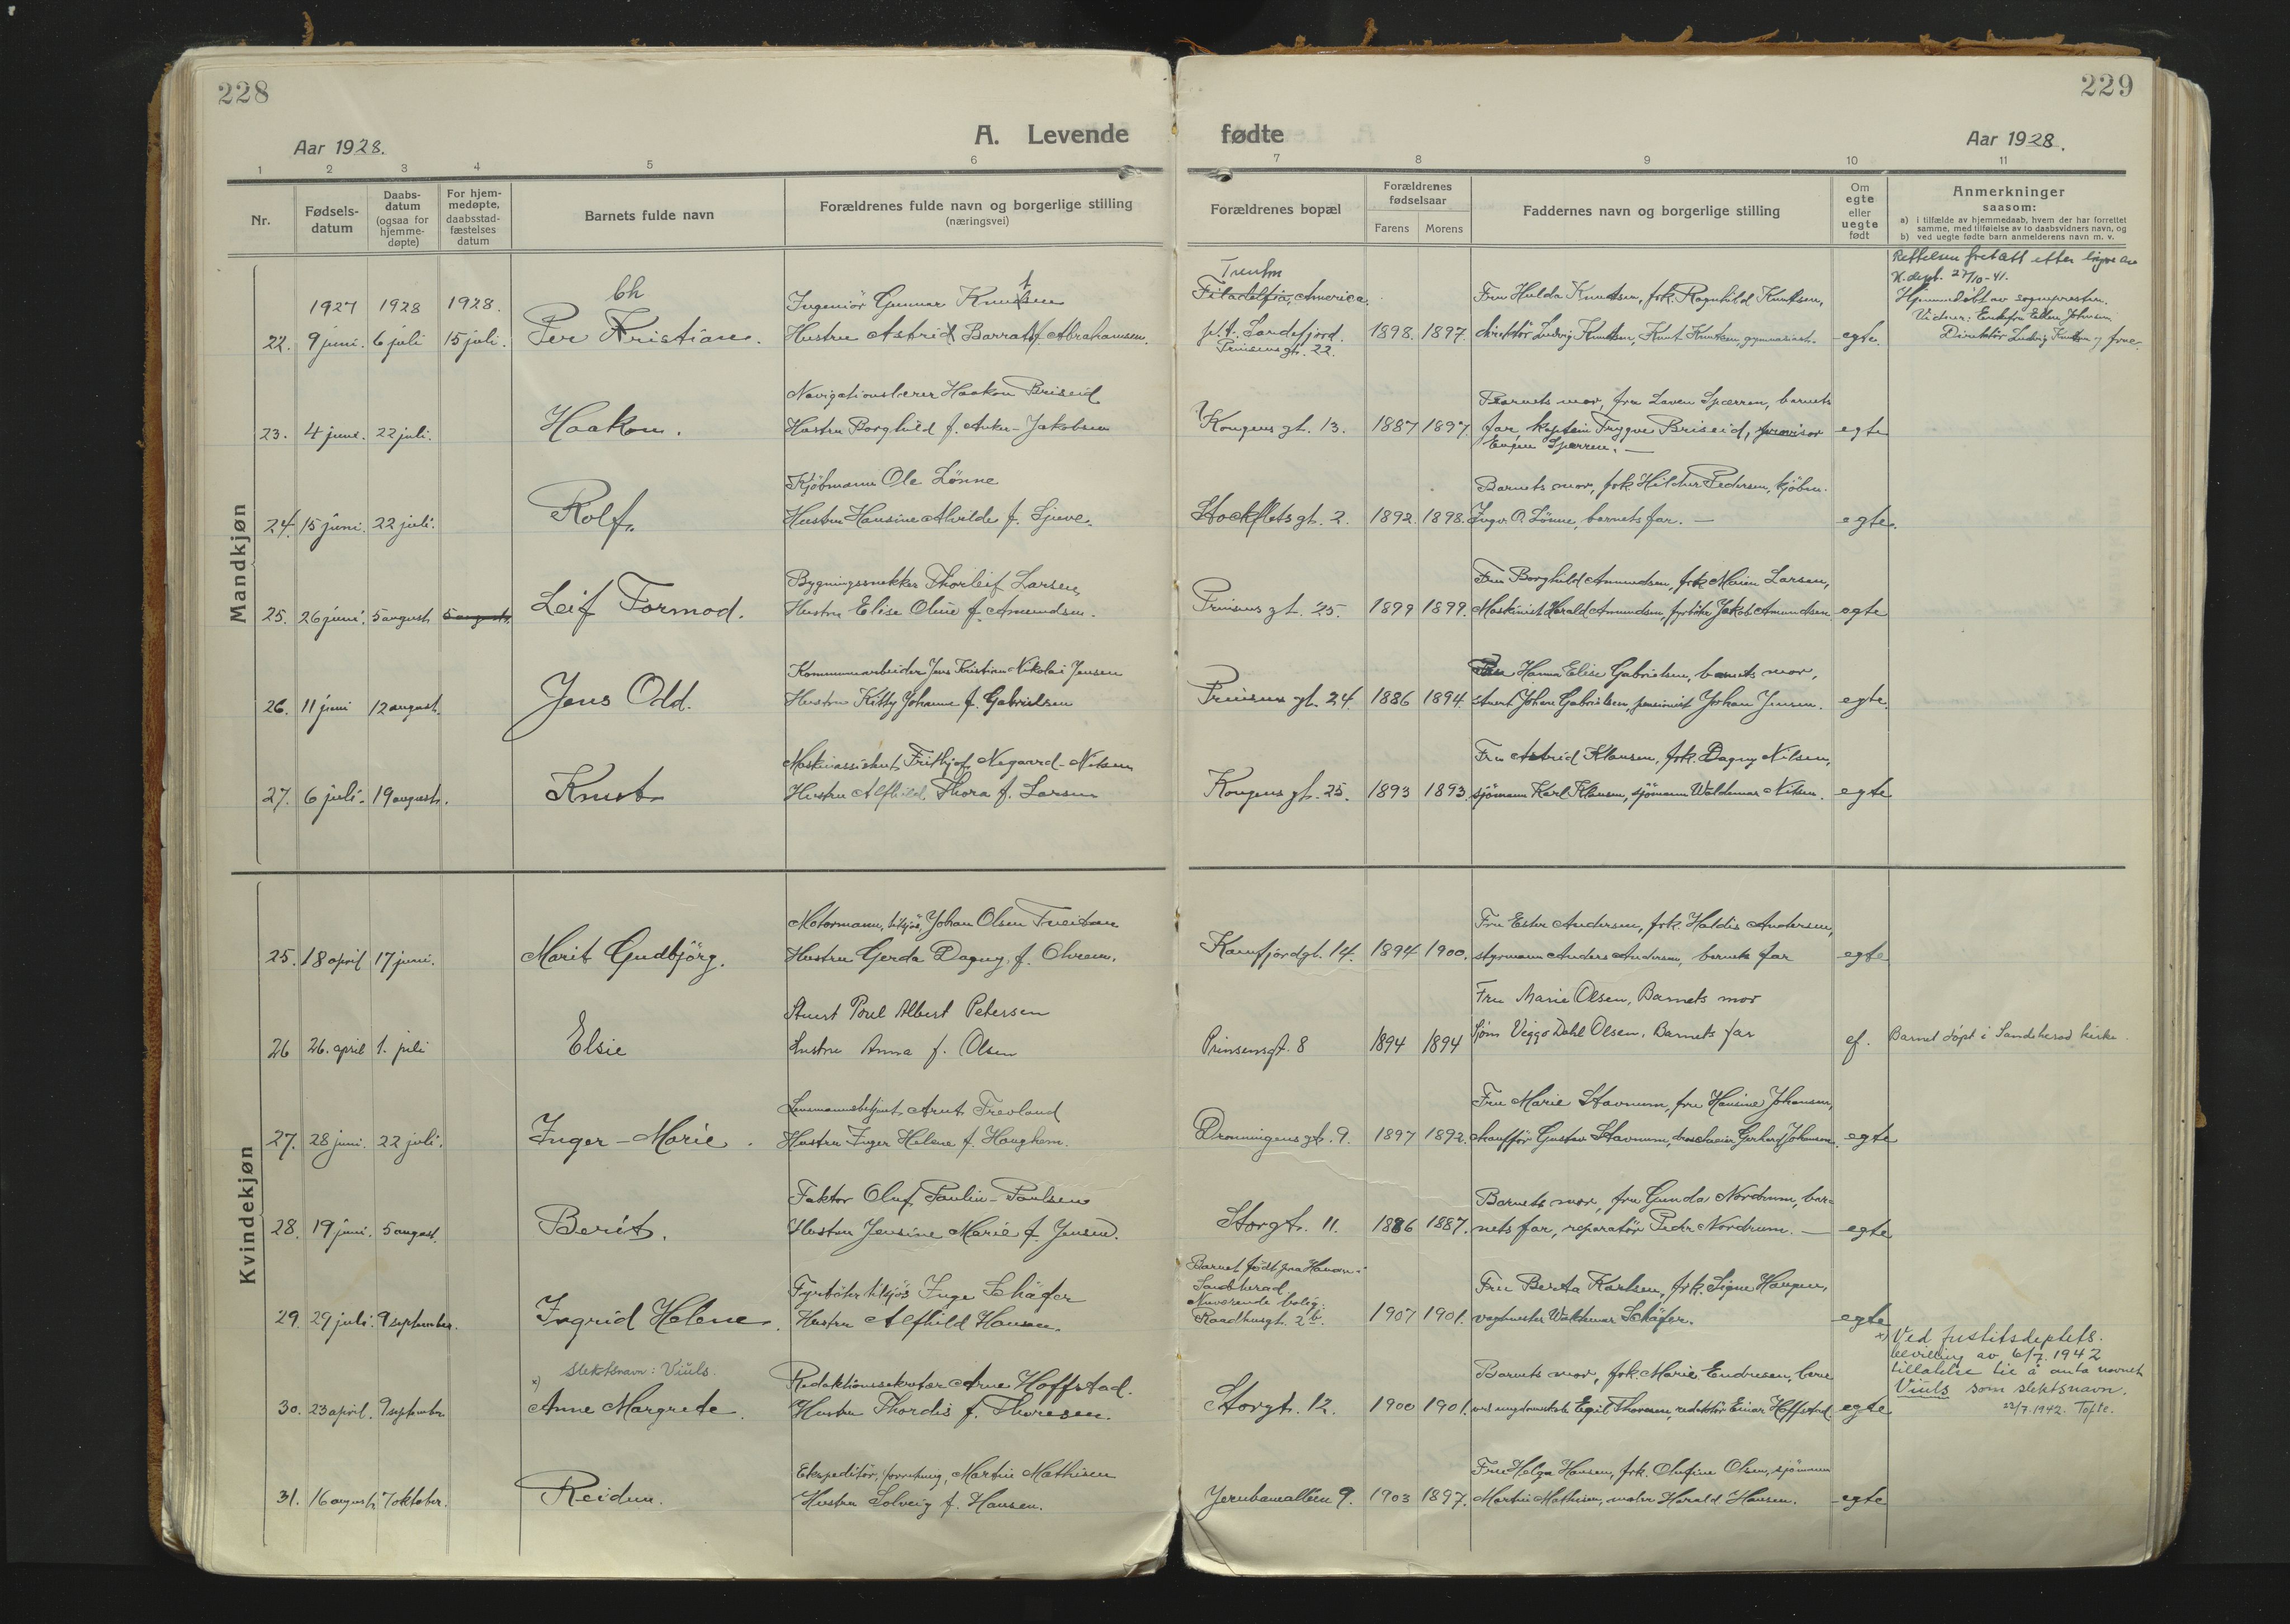 228
229
A. Levende fødte
Aar 1928.
Aar 1928.
1 2 3 4 5 6 7 8 9 10 11
Nr.
Fødsels-
datum
Daabs-
datum
(ogsaa for
hjemme-
døpte)
For hjem-
medøpte,
daabsstad-
fæstelses
datum
Barnets fulde navn
Forældrenes fulde navn og borgerlige stilling
(næringsvei)
Forældrenes bopæl
Forældrenes
fødselsaar
Farens Morens
Faddernes navn og borgerlige stilling
Om
egte
eller
uegte
født
Anmerkninger
saasom:
a) i tilfælde av hjemmedaab, hvem der har forrettet
samme, med tilføielse av to daabsvidners navn, og
b) ved uegte fødte barn anmelderens navn m. v.
Mandkjøn
1927 1928 1928.
22. 9 juni. 6 juli 15 juli.
Ch
Per Kristian.
Ingeniör Gunnar Knutsen
Hustru Astrid Barratt f. Abrahamsen.
Trenton
Filadelfia, America.
p.t. Sandefjord.
Prinsensgt. 22.
1898. 1897.
Fru Hulda Knutsen, frk. Ragnhild Knutsen,
direktör Ludvig Knutsen, Knut Knutsen, gymnasiast.
egte.
Rettelsen foretatt etter
27/10-41.
Hjemmedöbt av sognepresten.
Vidner: Enkefru Ellen Johnsen
Direktör Ludvig Knutsen og frue.
23. 4 juni. 22 juli.
Haakon.
Navigationslærer Haakon Briseid
Hustru Borghild f. Anker-Jakobsen
Kongens gt. 13.
1887 1897.
Barnets mor, fru Laven Sparren, barnets
far, kaptein Trygve Briseid, provisor
Sparren. —
egte
24. 15 juni. 22 juli.
Rolf.
Kjöbmann Ole Lönne
Hustru Hansine Alvilde f. Sjuve.
Stockflets gt. 2.
1892. 1898.
Barnets mor, frk. Hildur Pedersen, kjöbm.
Ingv. O. Lönne, barnets far. —
egte.
25. 26 juni. 5 august 5 august.
Leif Tormod.
Bygningssnekker Thorleif Larsen,
Hustru Elise Oline f. Amundsen.
Prinsens gt. 25.
1899 1899.
Fru Borghild Amundsen, frk. Maien Larsen,
Maskinist Harald Amundsen, fyrböter Jakob Amundsen.
egte
26. 11 juni 12 august.
Jens Odd.
Kommunearbeider Jens Kristian Nikolai Jensen
Hustru Kitty Johanne f. Gabrielsen
Prinsens gt. 24.
1886 1894.
Fru Hanna Elise Gabrielsen, barnets mor,
stuert Johan Gabrielsen, pensionist Johan Jensen.
egte.
27. 6 juli. 19 august.
Knut
Maskinassistent Frithjof Nygaard-Nilsen
Hustru Alfhild Thora f. Larsen
Kongens gt. 25.
1893 1893.
Fru Astrid Klausen, frk. Dagny Nilsen,
sjömann Karl Klausen, sjömann Waldemar Nilsen.
egte
Kvindekjøn
25. 18 april 17 juni.
Marit Gudbjörg.
Motormann, tilsjös, Johan Olsen Tveitan
Hustru Gerda Dagny, f. Ohrem.
Kamfjordgt. 14.
1894 1900.
Fru Ester Andersen, frk. Haldis Andersen,
styrmann Anders Andersen, barnets far
egte
26 26. april 1. juli
Elsie
Stuert Poul Albert Petersen
Hustru Anna f. Olsen
Prinsensgt. 8
1894 1894
Fru Marie Olsen, Barnets mor
Sjöm Viggo Dahl Olsen, Barnets far
ef.
Barnet döpt i Sandeherad kirke.
27. 28 juni. 22 juli.
Inger-Marie.
Lensmannsbetjent Arnt Trevland
Hustru Inger Helene f. Haughem.
Dronningens gt. 9.
1897 1892.
Fru Marie Stavnum, fru Hansine Johansen,
chaufför Gustav Stavnum, Gerhard Johansen.
egte
28. 19 juni. 5 august.
Berit.
Faktor Oluf Paulin-Paulsen
Hustru Jensine Marie f. Jensen.
Storgt. 11.
1886 1887.
Barnets mor, fru Gunda Nordrum, bar-
nets far, reparatör Peder Nordrum. —
egte
29. 29 juli. 9 september.
Ingrid Helene.
Fyrböter tilsjös Inge Schäfer
Hustru Alfhild Hansen.
Barnet født paa i
Sandeherad
Nuværende bolig:
Raadhusgt. 2b.
1907 1901.
Fru Berta Karlsen, frk. Signe Haugen,
vagtmester Waldemar Schäfer.
egte
30. 23 april. 9 september
slektsnavn: Viuls.
x)
Anne Margrete.
Redaktionssekretær Arne Hoffstad.
Hustru Thordis f. Thoresen.
Storgt. 12.
1900 1901.
Barnets mor, frk. Marie Endresen,
Egil Thoresen, redaktör Einar Hoffstad.
egte
x) Ved Justitsdeptets.
bevilling av 6/7. 1942
tillatelse til å anta navnet
Viuls som slektsnavn.
22/7.1942. Tofte.
31. 16 august 7 oktober.
Reidun.
Ekspeditör, forretning, Martin Mathisen
Hustru Solveig f. Hansen.
Jernbanealléen 9.
1903 1897.
Fru Helga Hansen, frk. Olufine Olsen, sjömann
Martin Mathisen, maler Harald Hansen.
egte